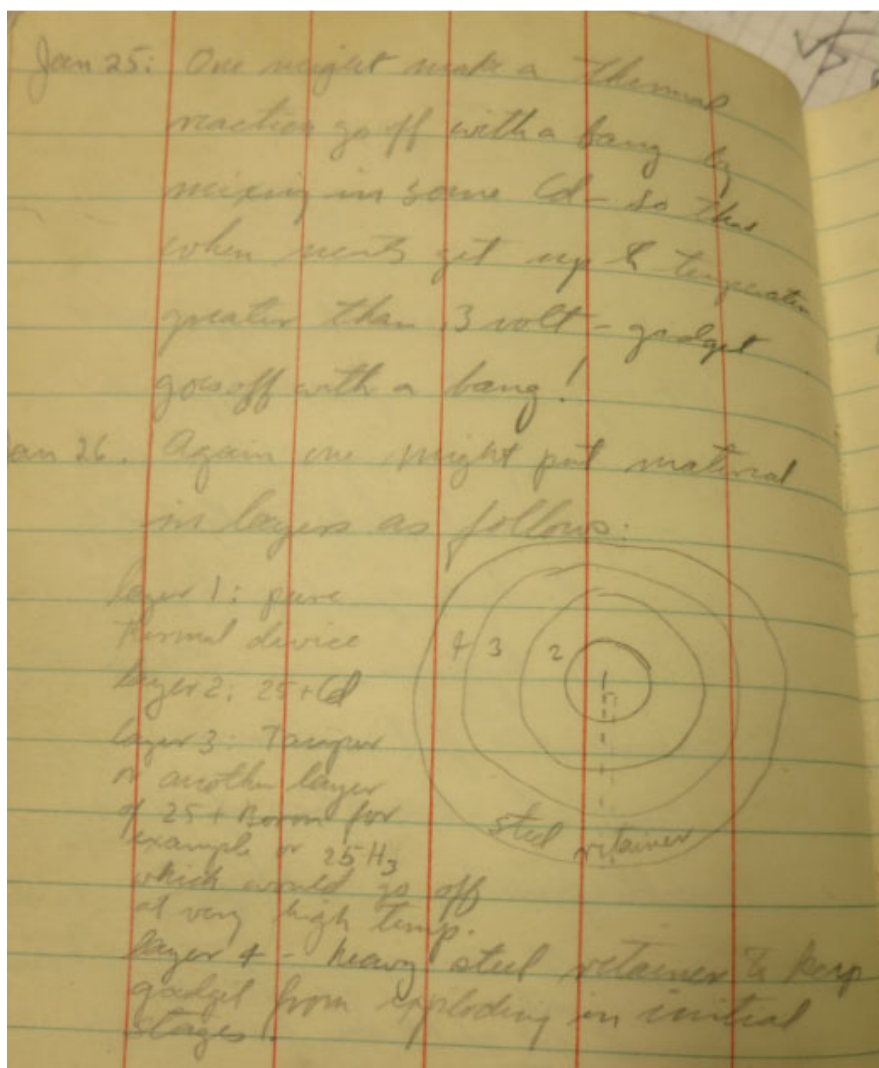 Jan 25: One might make a thermal
reaction go off with a bang by
mixing in some Cd - so that
when neuts get up to temperature
greater than .3 volt - gadget
goes off with a bang!
Jan 26. Again one might put material
in layers as follows:
layer 1: pure
thermal device
layer 2: 25+Cd
layer 3: Tamper
or another layer
of 25+Boron for
example or 25H₃
which would go off
at very high temp.
layer 4 - heavy steel retainer to keep
gadget from exploding in initial
stages.
4 3 2 1
steel retainer